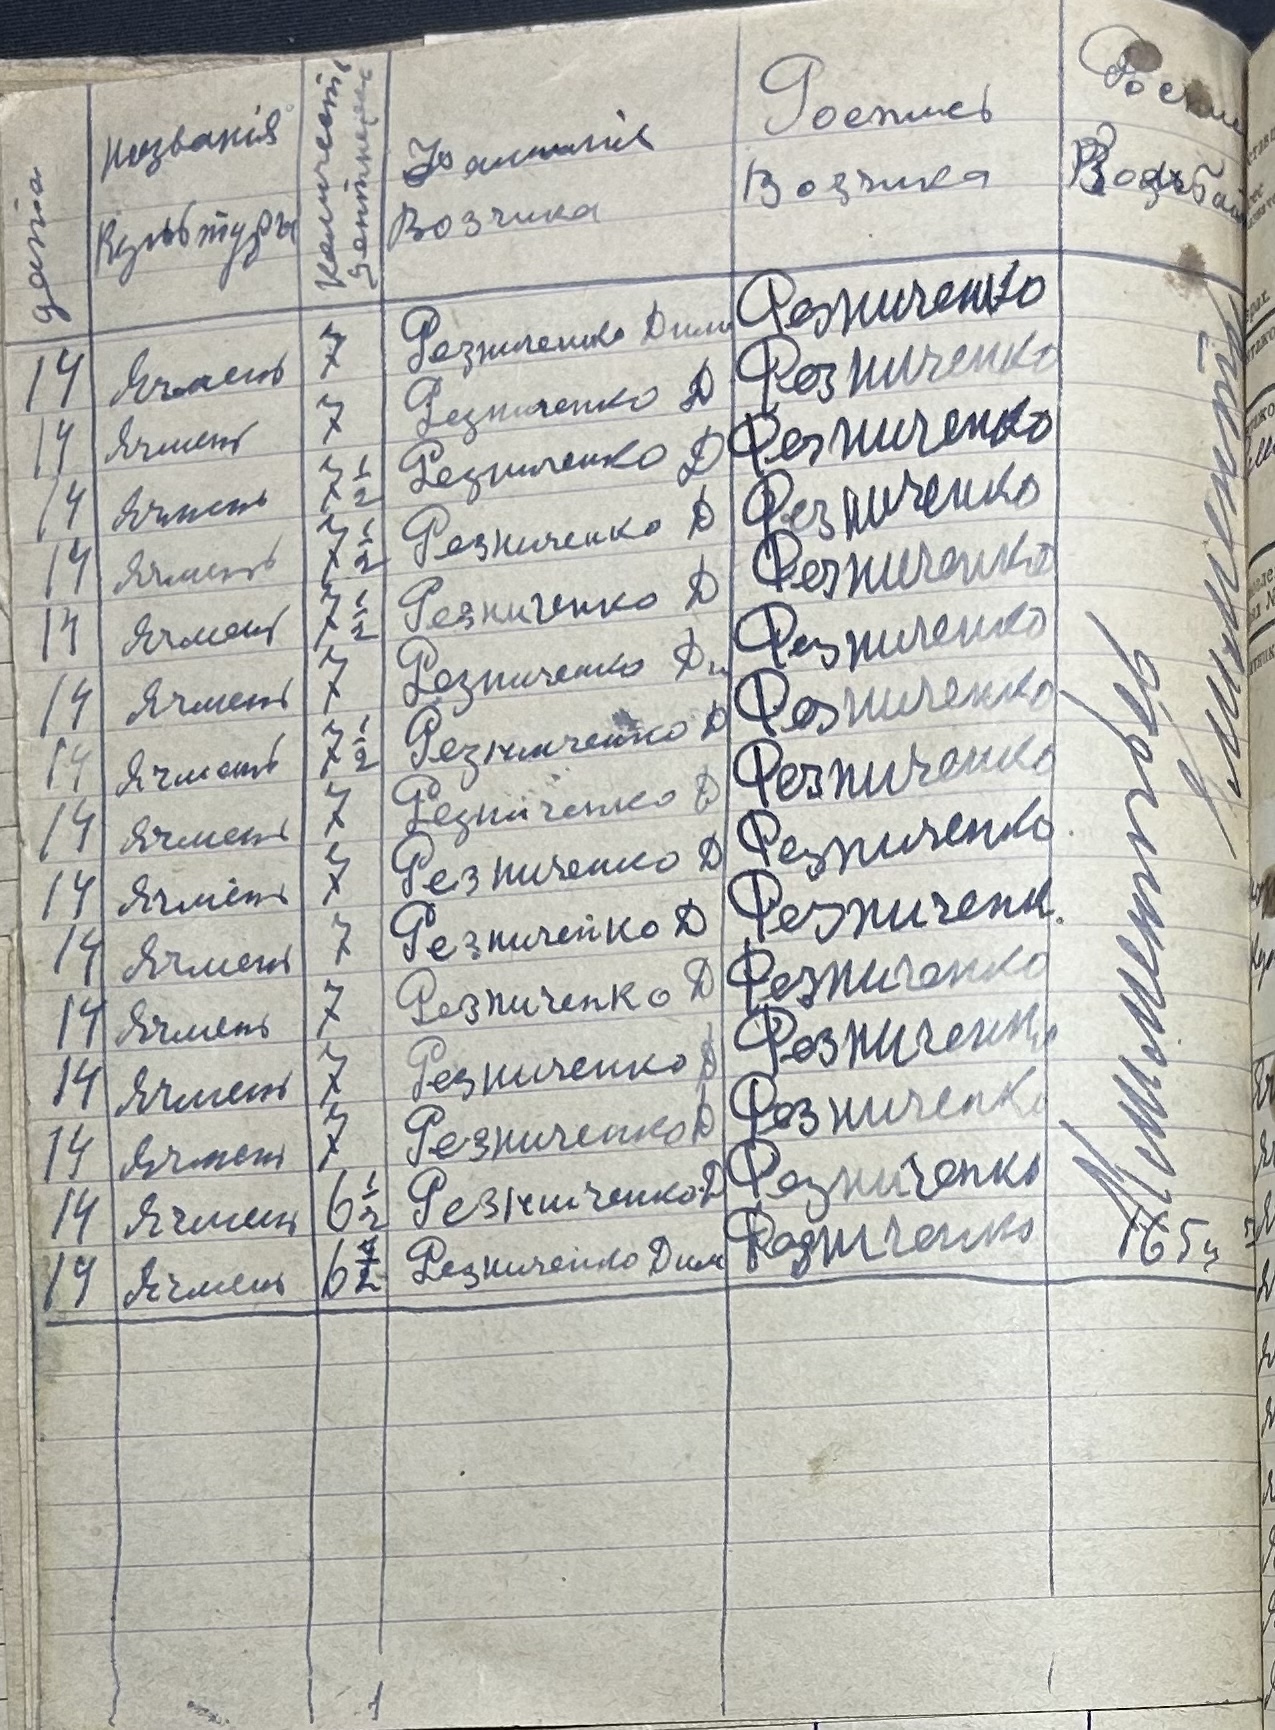 дата
названія
Культуры
Количество
центнеров
Фамилія
Возчика
Роспись
Возчика
Роспи
14 Ячмень 7 Резниченко Дим Резниченко
14 Ячмень 7 Резниченко Д Резниченко
14 Ячмень 7 1/2 Резниченко Д Резниченко
14 Ячмень 7 1/2 Резниченко Д Резниченко
14 Ячмень 7 1/2 Резниченко Д Резниченко
14 Ячмень 7 Резниченко Ди Резниченко
14 Ячмень 7 1/2 Резниченко Д Резниченко
14 Ячмень 7 Резниченко Д Резниченко
14 Ячмень 7 Резниченко Д Резниченко
14 Ячмень 7 Резниченко Д Резниченк.
14 Ячмень 7 Резниченко Д Резниченко
14 Ячмень 7 Резниченко Д Резниченко
14 Ячмень 7 Резниченко Д Резниченко
14 Ячмень 6 1/2 Резниченко Д Резниченко
14 Ячмень 6 1/2 Резниченко Дим Резниченко
165 ц